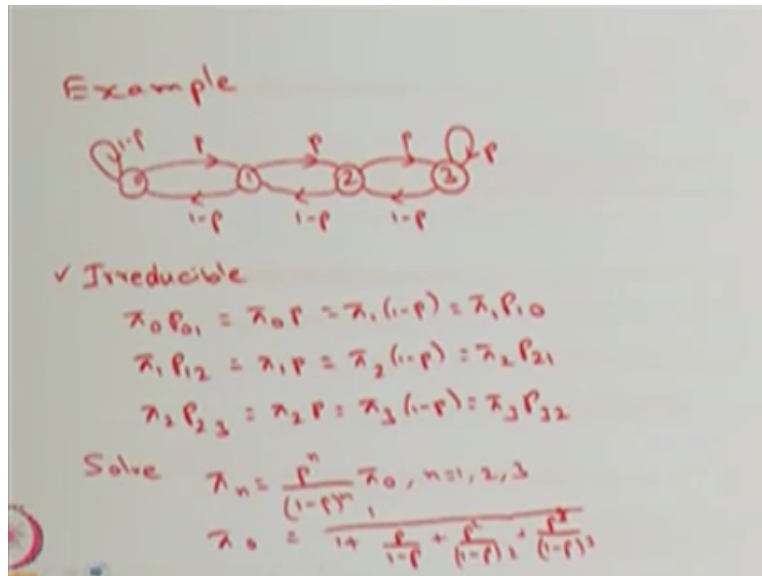 Example
1-p p p p p
0 1 2 3
1-p 1-p 1-p
✓ Irreducible
π₀P₀₁ = π₀P = π₁(1-P) = π₁P₁₀
π₁P₁₂ = π₁P = π₂(1-P) = π₂P₂₁
π₂P₂₃ = π₂P = π₃(1-P) = π₃P₃₂
Solve πₙ = pⁿ/(1-p)ⁿ π₀, n=1, 2, 3
π₀ = 1/(1+ p/(1-p) + p²/(1-p)² + p³/(1-p)³)